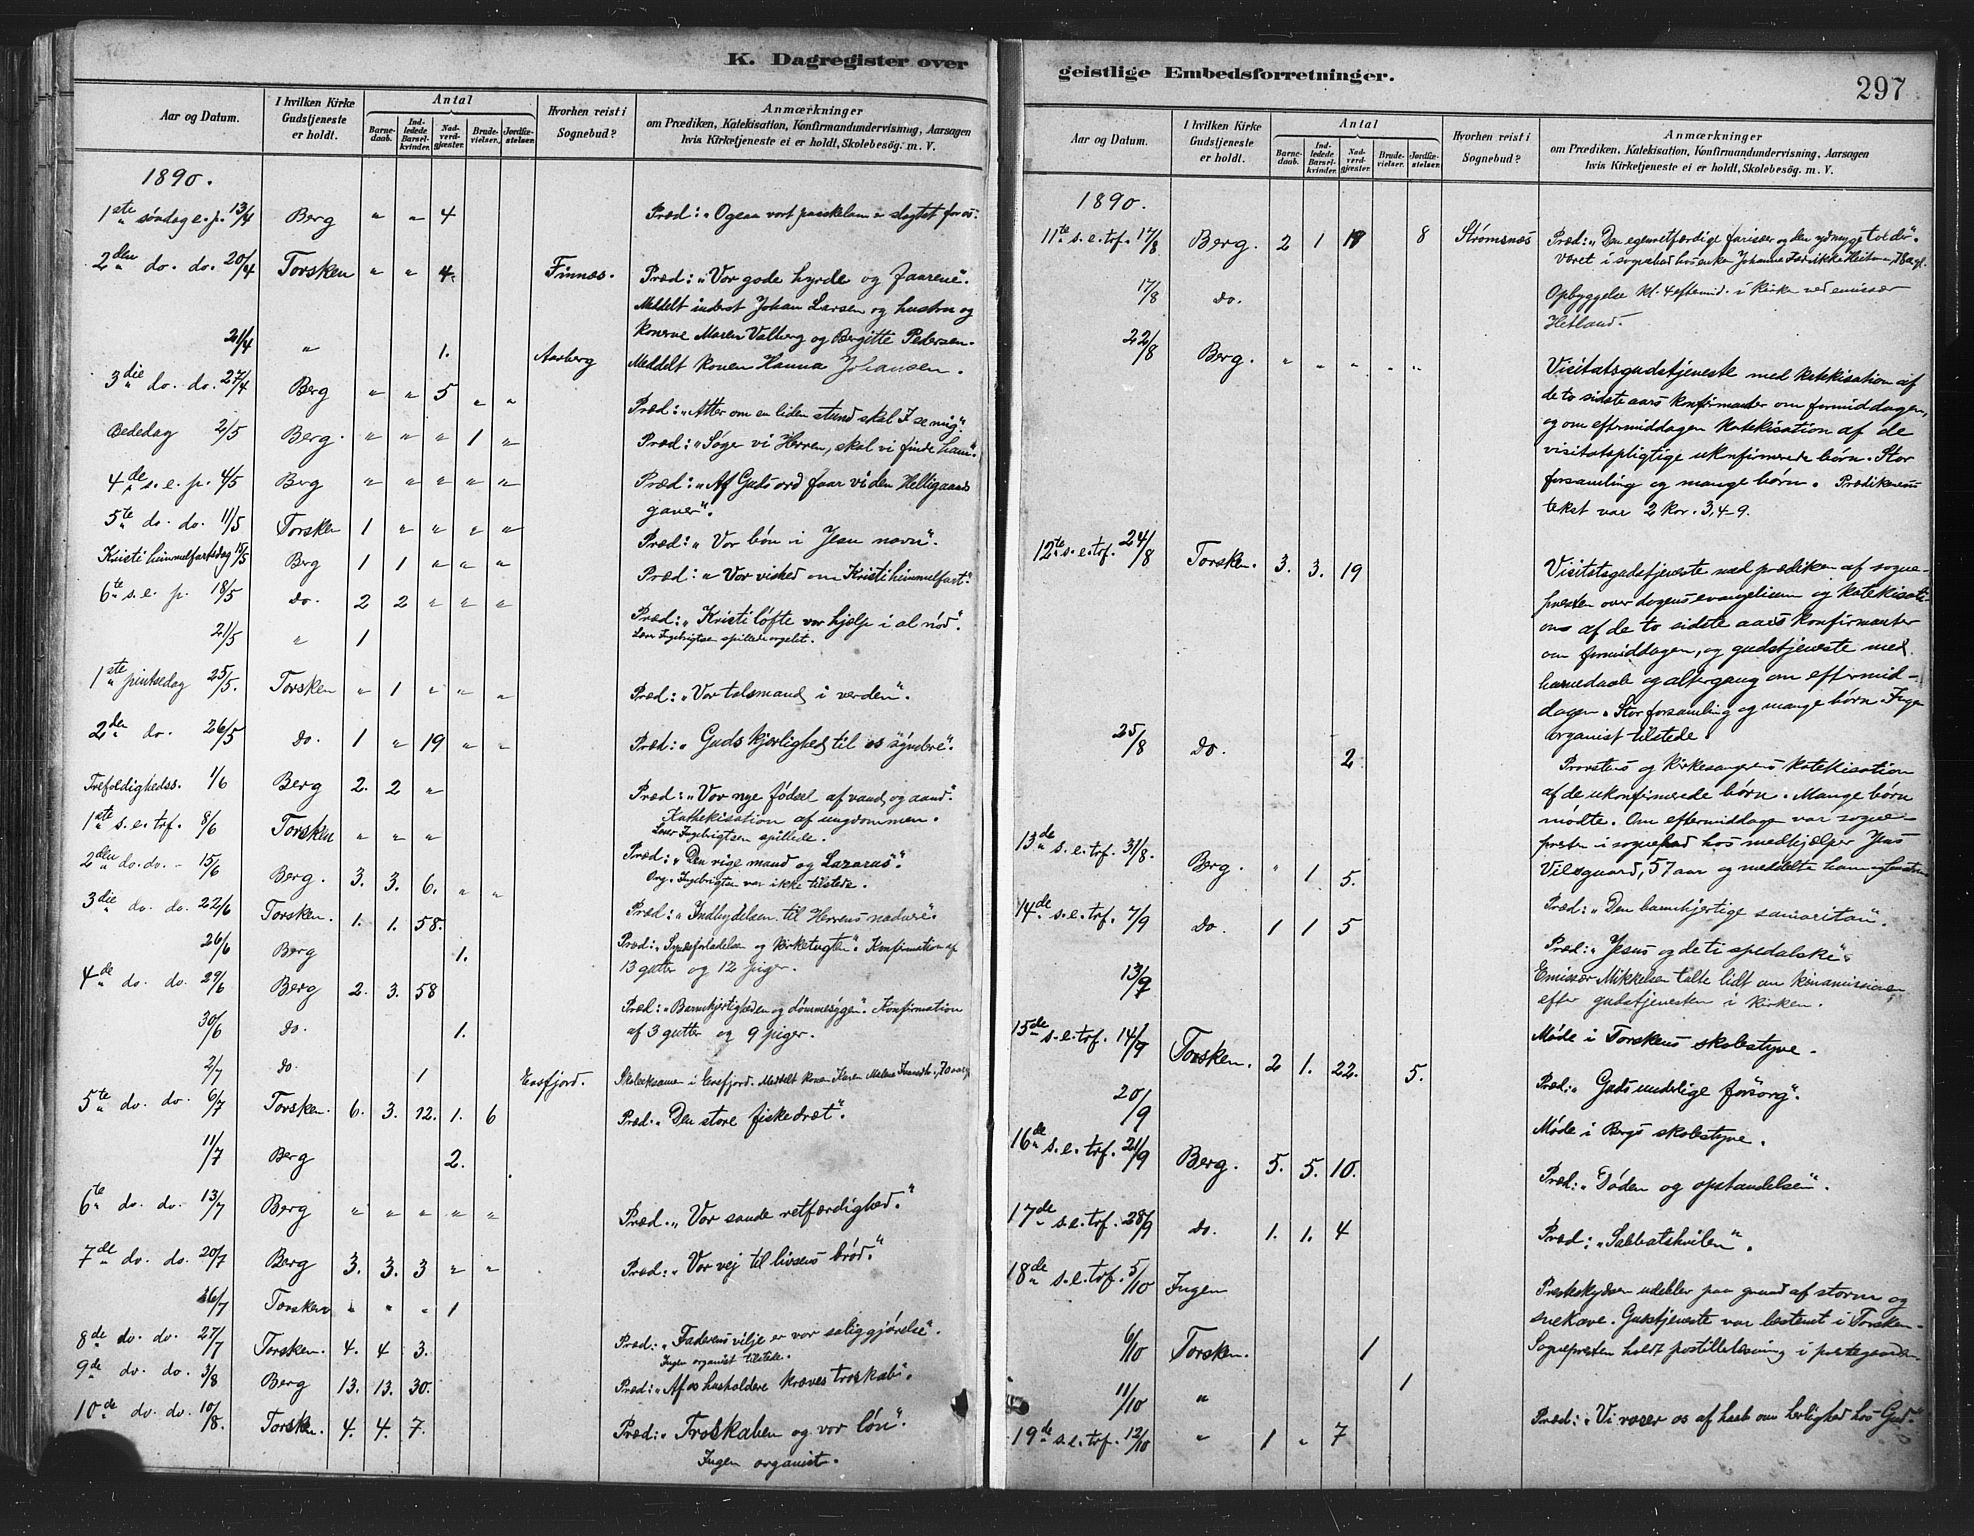 K. Dagregister over
Aar og Datum.
I hvilken Kirke Gudstjeneste er holdt.
Antal
Barnedaab.
Indledede Barselkvinder.
Nadverdgjæster.
Brudevielser.
Jordfæstelser.
Hvorhen reist i Sognebud?
Anmærkninger
om Prædiken, Katekisation, Konfirmandundervisning, Aarsagen
hvis Kirketjeneste ei er holdt, Skolebesøg. m. V.
1890.
1ste søndag e. p. 13/4 Berg " " 4 Præd: "Ogsaa vort paaskelam er slagtet for os.
2den do. do. 20/4 Torsken " " 4. Finnæs. Præd: "Vor gode hyrde og faarene".
Meddelt inderst Johan Larsen og hustru og
konerne Maren Valberg og Bergitte Pedersen.
21/4 " 1. Aasberg Meddelt konen Hanna Johansen.
3die do. do. 27/4 Berg " " 5 " " Præd: "Atter om en liden stund skal I se mig".
Bededag 2/5 Berg. " " " 1 " Præd: "Søge vi Herren, skal vi finde ham".
4de s. e. p. 4/5 Berg " " " " " Præd: "Af Guds ord faar vi den Helligaands
gaver".
5te do. do. 11/5 Torsken 1 " " " " Præd: "Vor bøn i Jesu navn".
Kristi himmelfartsdag 15/5 Berg 1 1 " " " Præd: "Vor vished om Kristi himmelfart".
6te s. e. p. 18/5 do. 2 2 " " " Præd: "Kristi løfte vor hjælp i al nød".
Lærer Ingebrigtsen spillede orgelet.
21/5 " 1
1ste pintsedag 25/5. Torsken " 1 " " " Præd: "Vor talsmand i verden".
2den do. 26/5 do. 1 " 19 " " Præd: "Guds kjærlighed til os syndere".
Trefoldighedss. 1/6 Berg 2. 2 " Præd: "Vor nye fødsel af vand og aand".
Kathekisation af ungdommen.
Lærer Ingebrigtsen spillede.
1ste s. e. trf. 8/6 Torsken " " " Præd: "Den rige mand og Lazarus".
Org. Ingebrigtsen var ikke tilstede.
2den do. do. - 15/6 Berg. 3. 3. 6. " " Præd: "Indbydelsen til Herrens nadvere".
3die do. do. 22/6 Torsken. 1. 1. 58. Præd: "Syndsforladelsen og kirketugten". Konfirmation af
13 gutter og 12 piger.
26/6 Berg 1.
4de do. do. 29/6 Berg 2. 3. 58 Præd: "Barmhjertigheden og dømmesygen". Konfirmation
af 3 gutter og 9 piger.
30/6 do. 1.
2/7 do. 1 Ersfjord. Skoleeksamen i Ersfjord. Meddelt konen Karen Malena
5te do. do. 6/7 Torsken. 6. 3. 12. 1. 6 Præd. "Den store fiskedræt".
11/7 Berg 2.
6te do. do. 13/7 Berg " " " " " Præd. "Vor sande retfærdighed."
7de do. do. 20/7 Berg 3. 3. 3 " " Præd: "Vor vej til livsens brød."
26/7 Torsken " " " 1
8de do. do. 27/7 Torsken. 4. 4 3. Præd: "Faderens vilje er vor saliggjørelse".
Ingen organist tilstede.
9de do. do. 3/8 Berg 13. 13. 30. Præd: "Af os husholdere kræves troskab".
10de do. do. 10/8. Torsken. 4. 4. 7. Præd: "Troskaben og vor løn".
Ingen organist.
geistlige Embedsforretninger.
297
Aar og Datum.
I hvilken Kirke Gudstjeneste er holdt.
Antal
Barnedaab.
Indledede Barselkvinder.
Nadverdgjæster.
Brudevielser.
Jordfæstelser.
Hvorhen reist i Sognebud?
Anmærkninger
om Prædiken, Katekisation, Konfirmandundervisning, Aarsagen
hvis Kirketjeneste ei er holdt, Skolebesøg. m. V.
1890.
11te s. e. trf. 17/8 Berg. 2 1 8 Strømsnæs Præd: "Den egenretfærdige farisæer og den ydmyge tolder".
været i sognebud hos enken Johanna Fredrikke
17/8 do. Opbyggelse kl. 4 eftermid. i kirken ved emissær
Hetland.
22/8 Berg. " " " " " Visitatsgudstjeneste med katekisation af
de to sidste aars konfirmanter om formiddagen,
og om eftermiddagen katekisation af de
visitatspligtige ukonfirmerede børn. Stor
forsamling og mange børn. Prædikenens
tekst var 2 Kor. 3, 4-9.
12te s. e. trf. 24/8 Torsken. 3. 3. 19 Visitatsgudstjeneste med prædiken af sogne-
presten over dagens evangelium og katekisati-
on af de to sidste aars konfirmanter
om formiddagen, og gudstjeneste med
barnedaab og altergang om eftermid-
dagen. Stor forsamling og mange børn. Ingen
organist tilstede.
25/8 do. 2 Provstens og kirkesangerens katekisation
af de ukonfirmerede børn. Mange børn
mødte. Om eftermiddagen var sogne-
presten i sognebud hos medhjælper Jens
Vilsgaard, 57 aar og meddelte ham
13de s. e. trf. 31/8. Berg. " 1 5. Præd: "Den barmhjertige samaritan".
14de s. e. trf. 7/9 do. 1 1 5 Præd: "Jesus og de ti spedalske".
Emissær Mikkelsen talte lidt om kinamissionen
efter gudstjenesten i kirken.
13/9 Møde i Torskens skolestyre.
15de s. e. trf. 14/9 Torsken. 2 1. 22. 5. Præd: "Guds underlige forsorg".
20/9 Møde i Bergs skolestyre.
16de s. e. trf. 21/9 Berg. 5. 5. 10. Præd: "Døden og opstandelsen".
17de s. e. trf. 28/9 do. 1. 1. 4 Præd: "Sabbatshvilen".
18de s. e. trf. 5/10 Ingen Presteskydsen udeblev paa grund af storm og
snekave. Gudstjeneste var bestemt i Torsken.
Sognepresten holdt postillelæsning i prestegaarden.
6/10 Torsken. 1
11/10 " 1
19de s. e. trf. 12/10 " 1 " 7 Præd: "Vi roser os af haab om herlighed hos Gud."